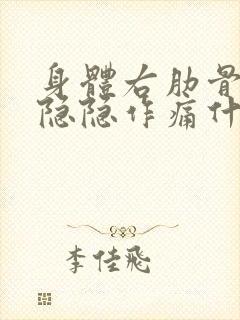 身體右肋骨
隐隐作痛什
李佳飛